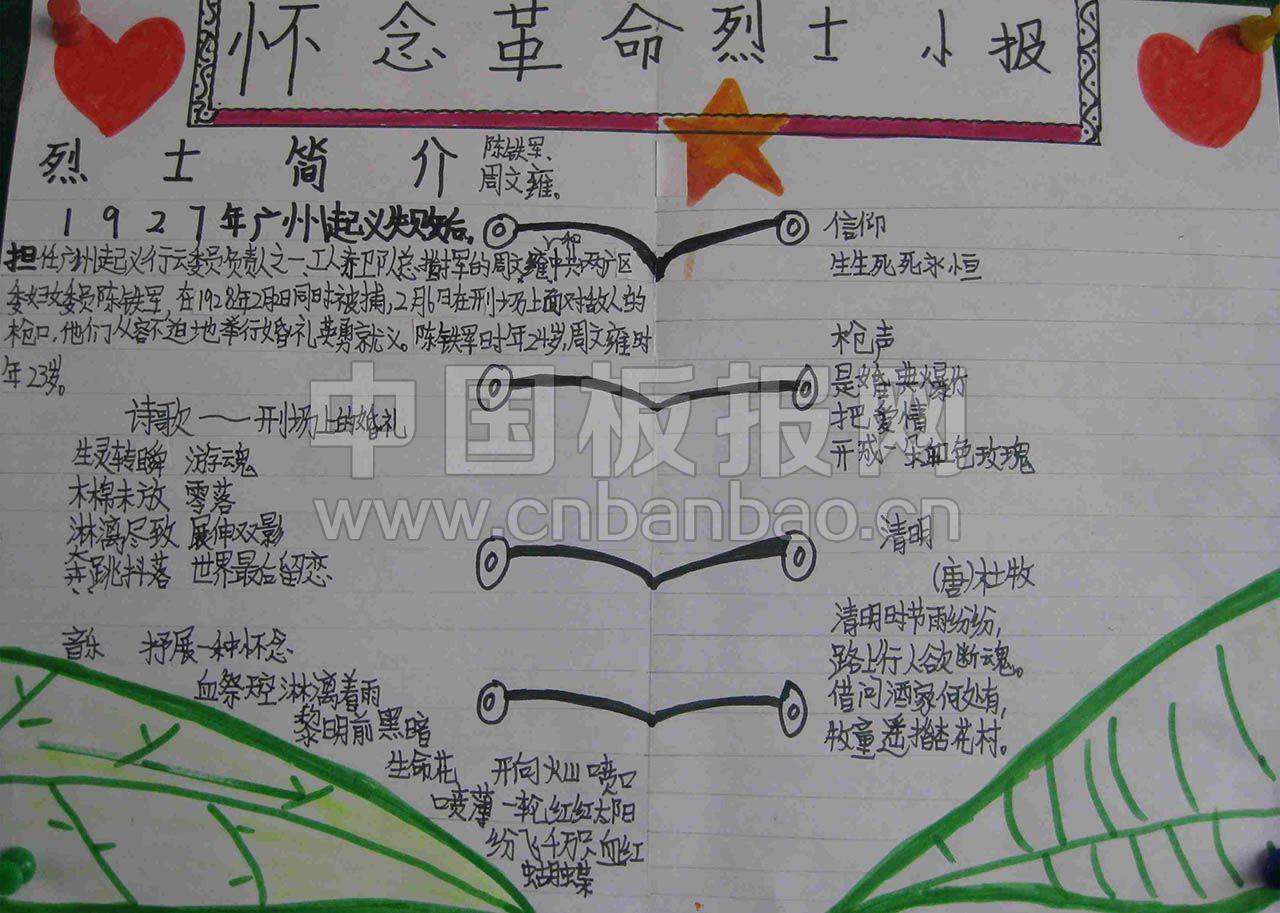 怀念革命烈士小报
烈士简介
陈铁军、
周文雍。
1927年广州起义失败后,
担任广州起义行云委员负责人之一、工人赤卫队总指挥军的周文雍和中共两广区
委妇女委员陈铁军,在1928年2月2日同时被捕,2月6日在刑场上面对敌人的
枪口,他们从容不迫地举行婚礼英勇就义。陈铁军时年24岁,周文雍时
年23岁。
诗歌——刑场上的婚礼
生灵转瞬 游魂
木棉未放 零落
淋漓尽致 展伸双影
奔跳抖落 世界最后留恋
音乐 抒展一种怀念
血祭天空淋漓着雨
黎明前黑暗
生命花 开向火山喷口
喷薄一轮红红太阳
纷飞千万只血红
蝴蝶
信仰
生生死死永恒
枪声
是婚典爆竹
把爱情
开成一朵血色玫瑰
清明
(唐)杜牧
清明时节雨纷纷,
路上行人欲断魂。
借问酒家何处有,
牧童遥指杏花村。
中国板报网
www.cnbanbao.cn